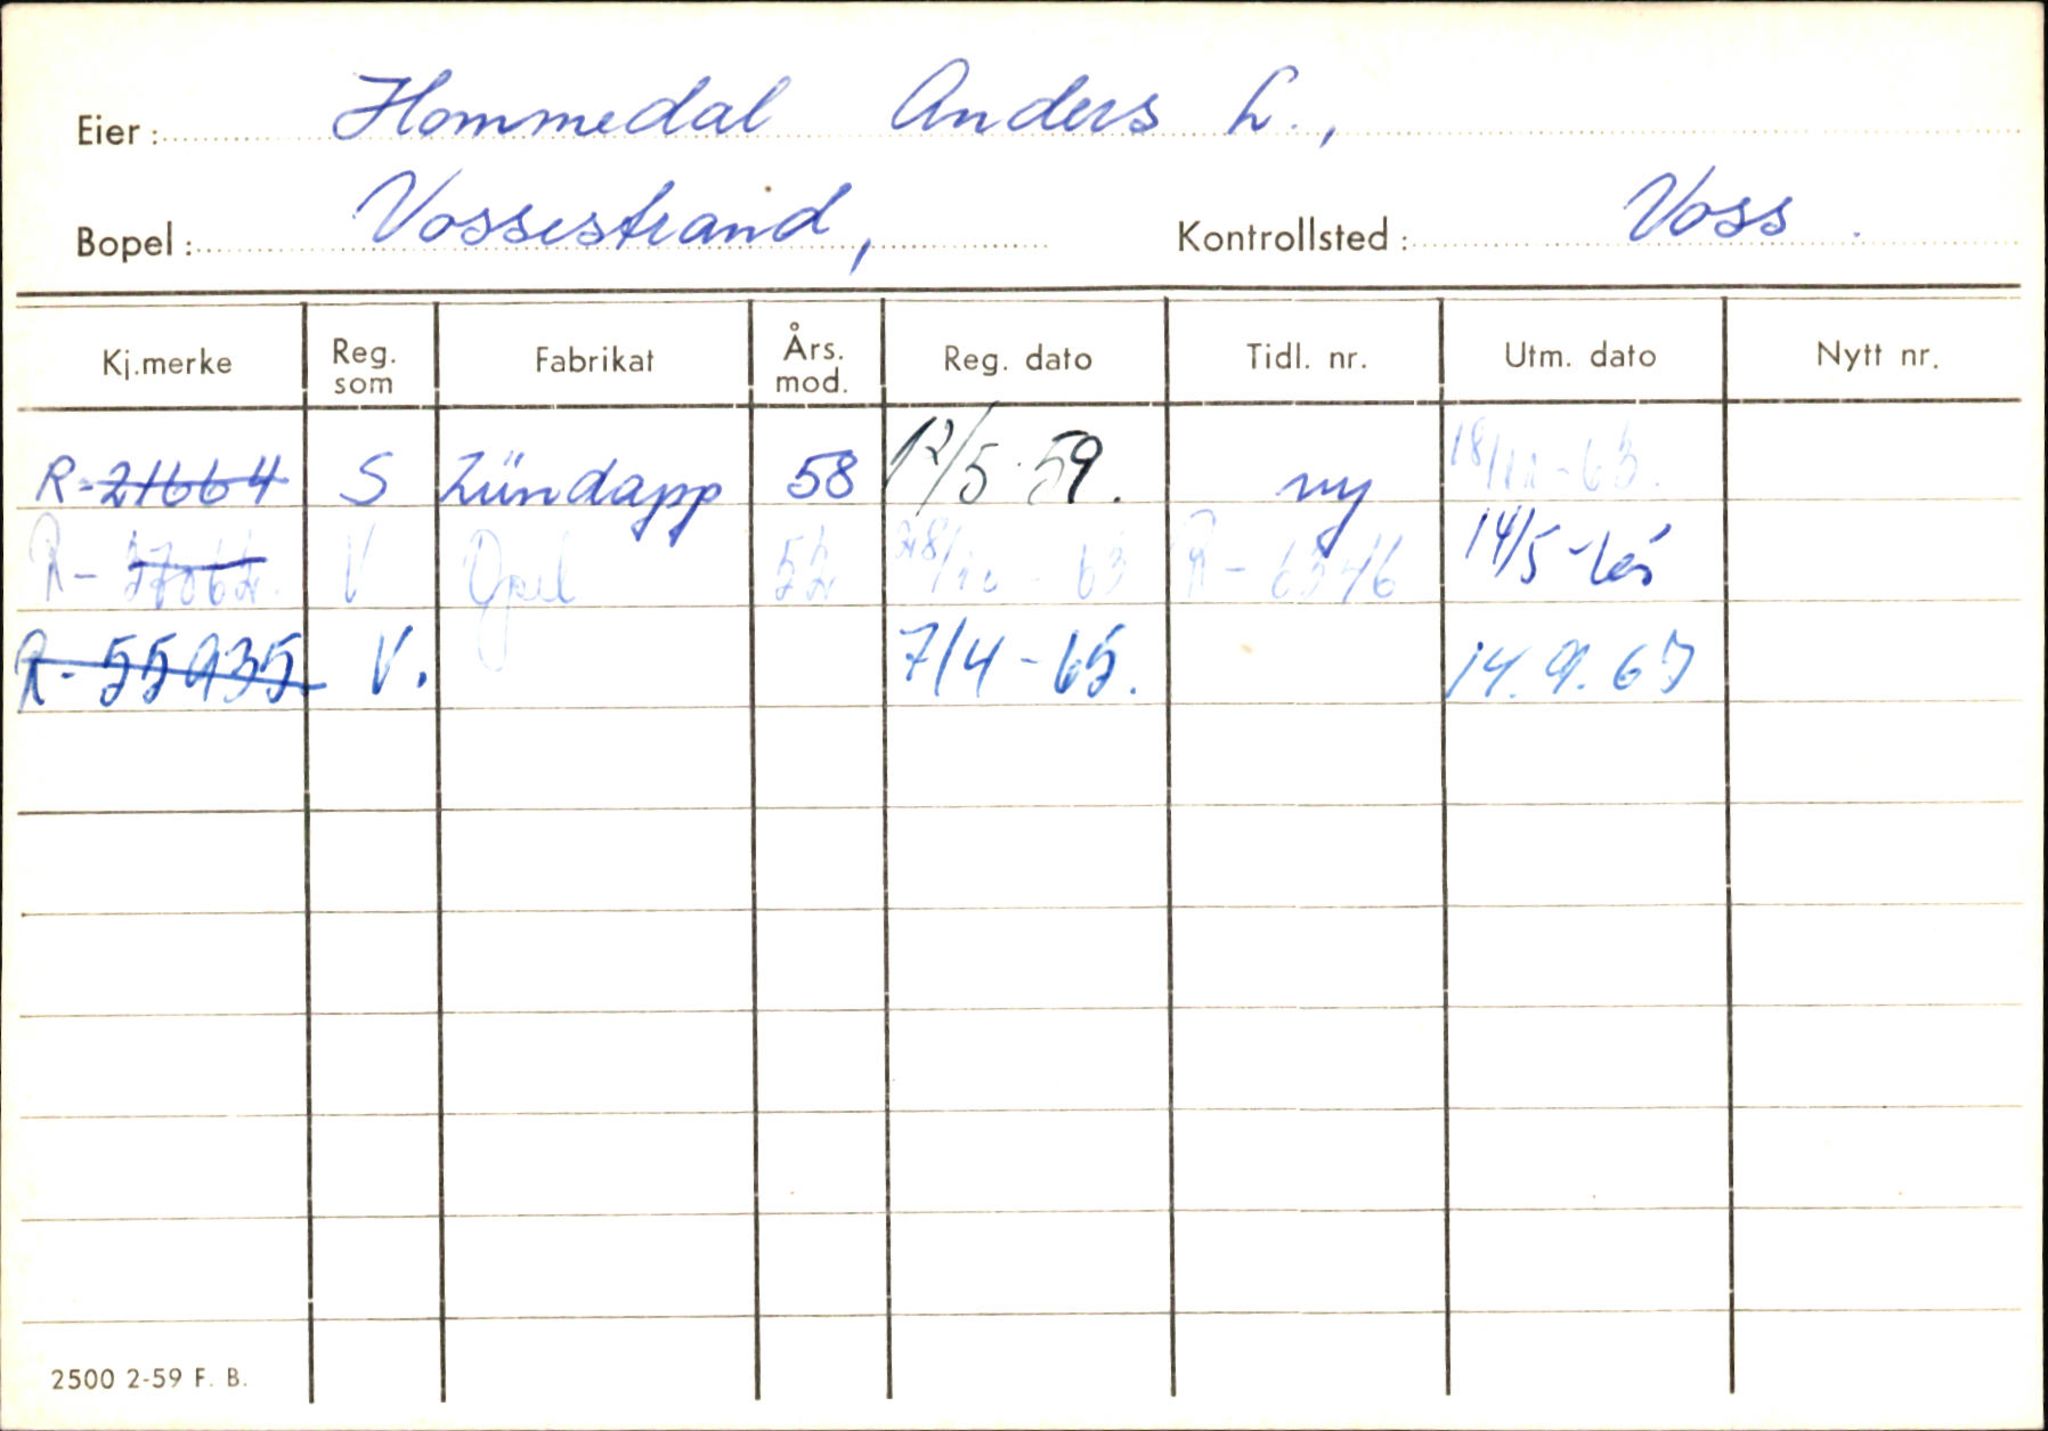 Eier: Hommedal Anders L.,
Bopel: Vossestrand, Kontrollsted: Voss.
Kj.merke Reg. som Fabrikat Års. mod. Reg. dato Tidl. nr. Utm. dato Nytt nr.
R-21664 S Zündapp 58 12/5-59. ny 18/11-63.
R- V Opel 52 R-6346 14/5-65
R-55935 V. 7/4-65. 14.9.67
2500 2-59 F. B.